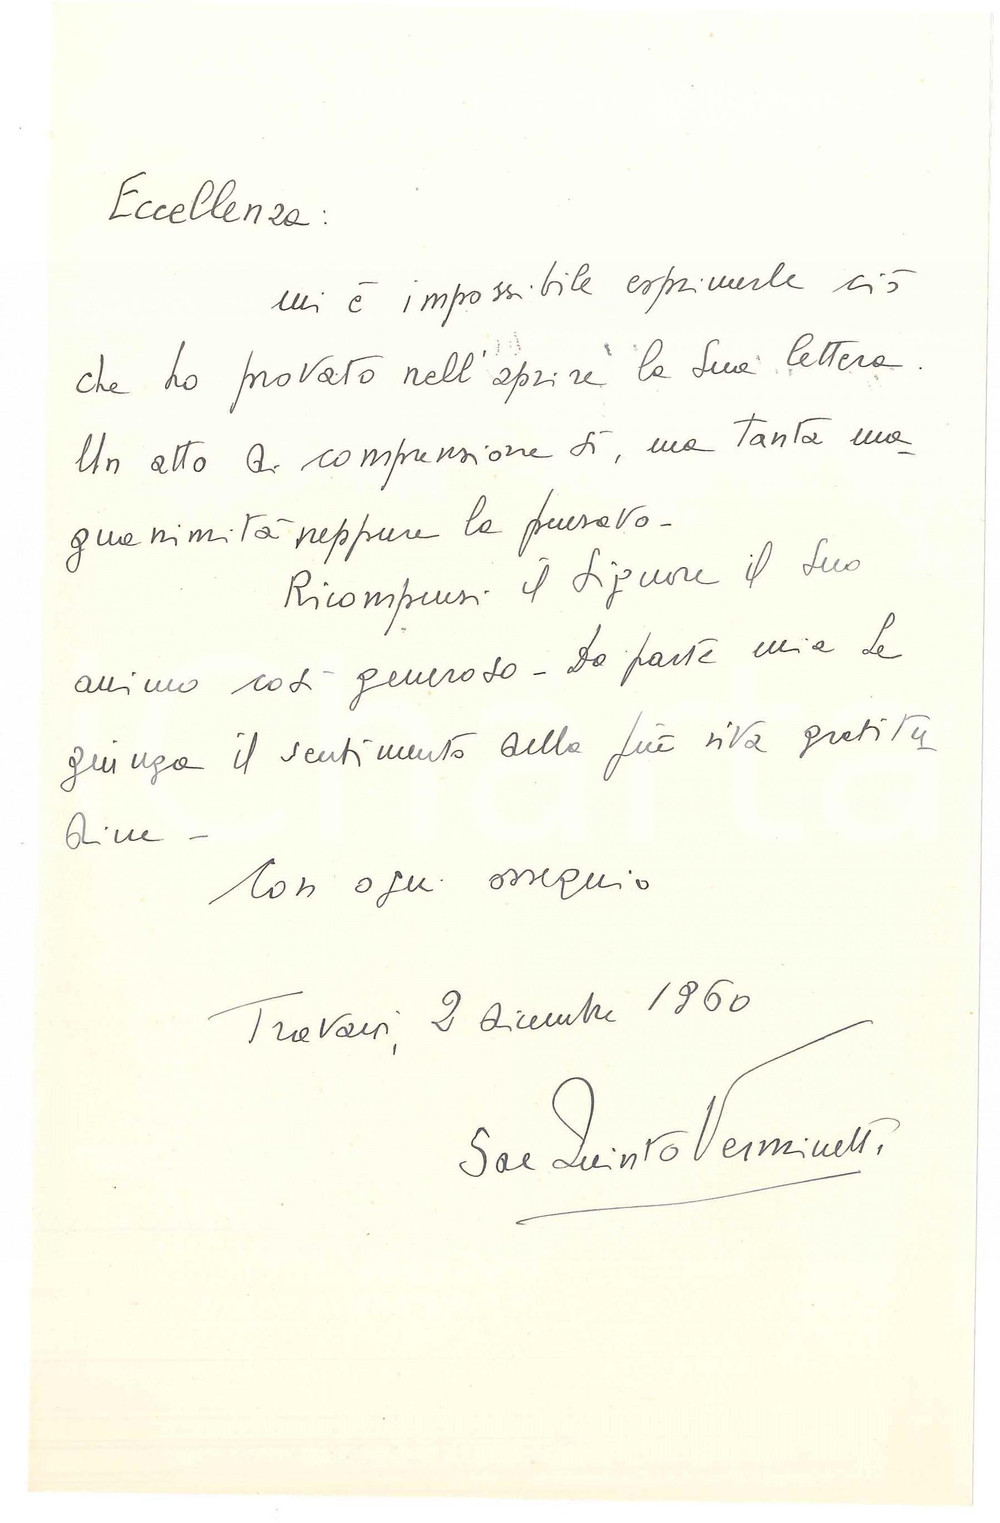 Eccellenza:
mi è impossibile esprimerle ciò
che ho provato nell'aprire la Sua lettera.
Un atto di comprensione sì, ma tanta ma-
gnanimità neppure la pensavo -
Ricompensi il Signore il Suo
animo così generoso - Da parte mia Le
giunga il sentimento della più viva gratitu
dine -
Con ogni ossequio
2 dicembre 1960
Sac Quinto Verminetti